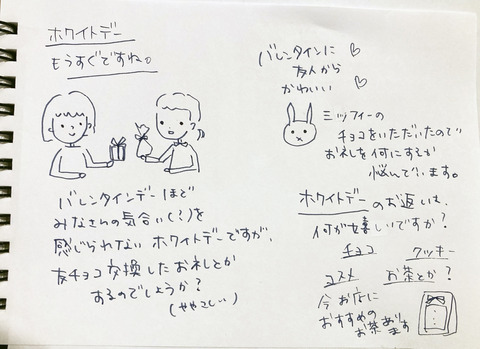 ホワイトデー
もうすぐですね。
バレンタインデーほど
みなさんの気合い(?)を
感じられないホワイトデーですが、
友チョコ交換したお礼とか
するのでしょうか?
(ややこしい)
バレンタインに
友人から
かわいい
ミッフィーの
チョコをいただいたので
お礼を何にするか
悩んでいます。
ホワイトデーのお返しも、
何が嬉しいですか?
チョコ クッキー
コスメ お茶とか?
今お店に
おすすめの
お茶あります